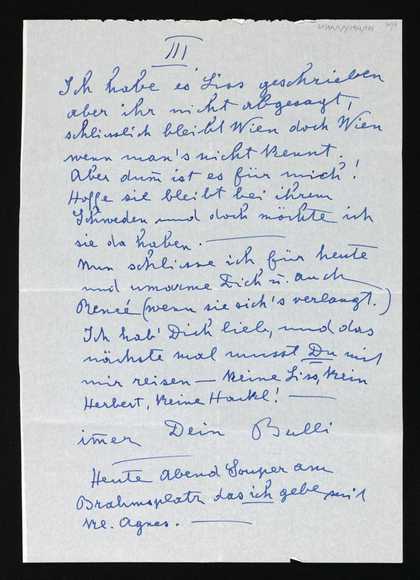 III
Ich habe es Liss geschrieben
aber ihr nicht abgesagt,
schliesslich bleibt Wien doch Wien
wenn man's nicht kennt.
Aber dum ist es für mich!
Hoffe sie bleibt bei ihrem
Schweden und doch möchte ich
sie da haben. —
Nun schliesse ich für heute
und umarme Dich u. auch
Reneé (wenn sie sich's verlangt.)
Ich hab' Dich lieb, und das
nächste mal musst Du mit
mir reisen — keine Liss, kein
Herbert, keine Hackl! —
imer Dein Bulli
Heute Abend Souper am
Brahmsplatz das ich gebe mit
kl. Agnes. —